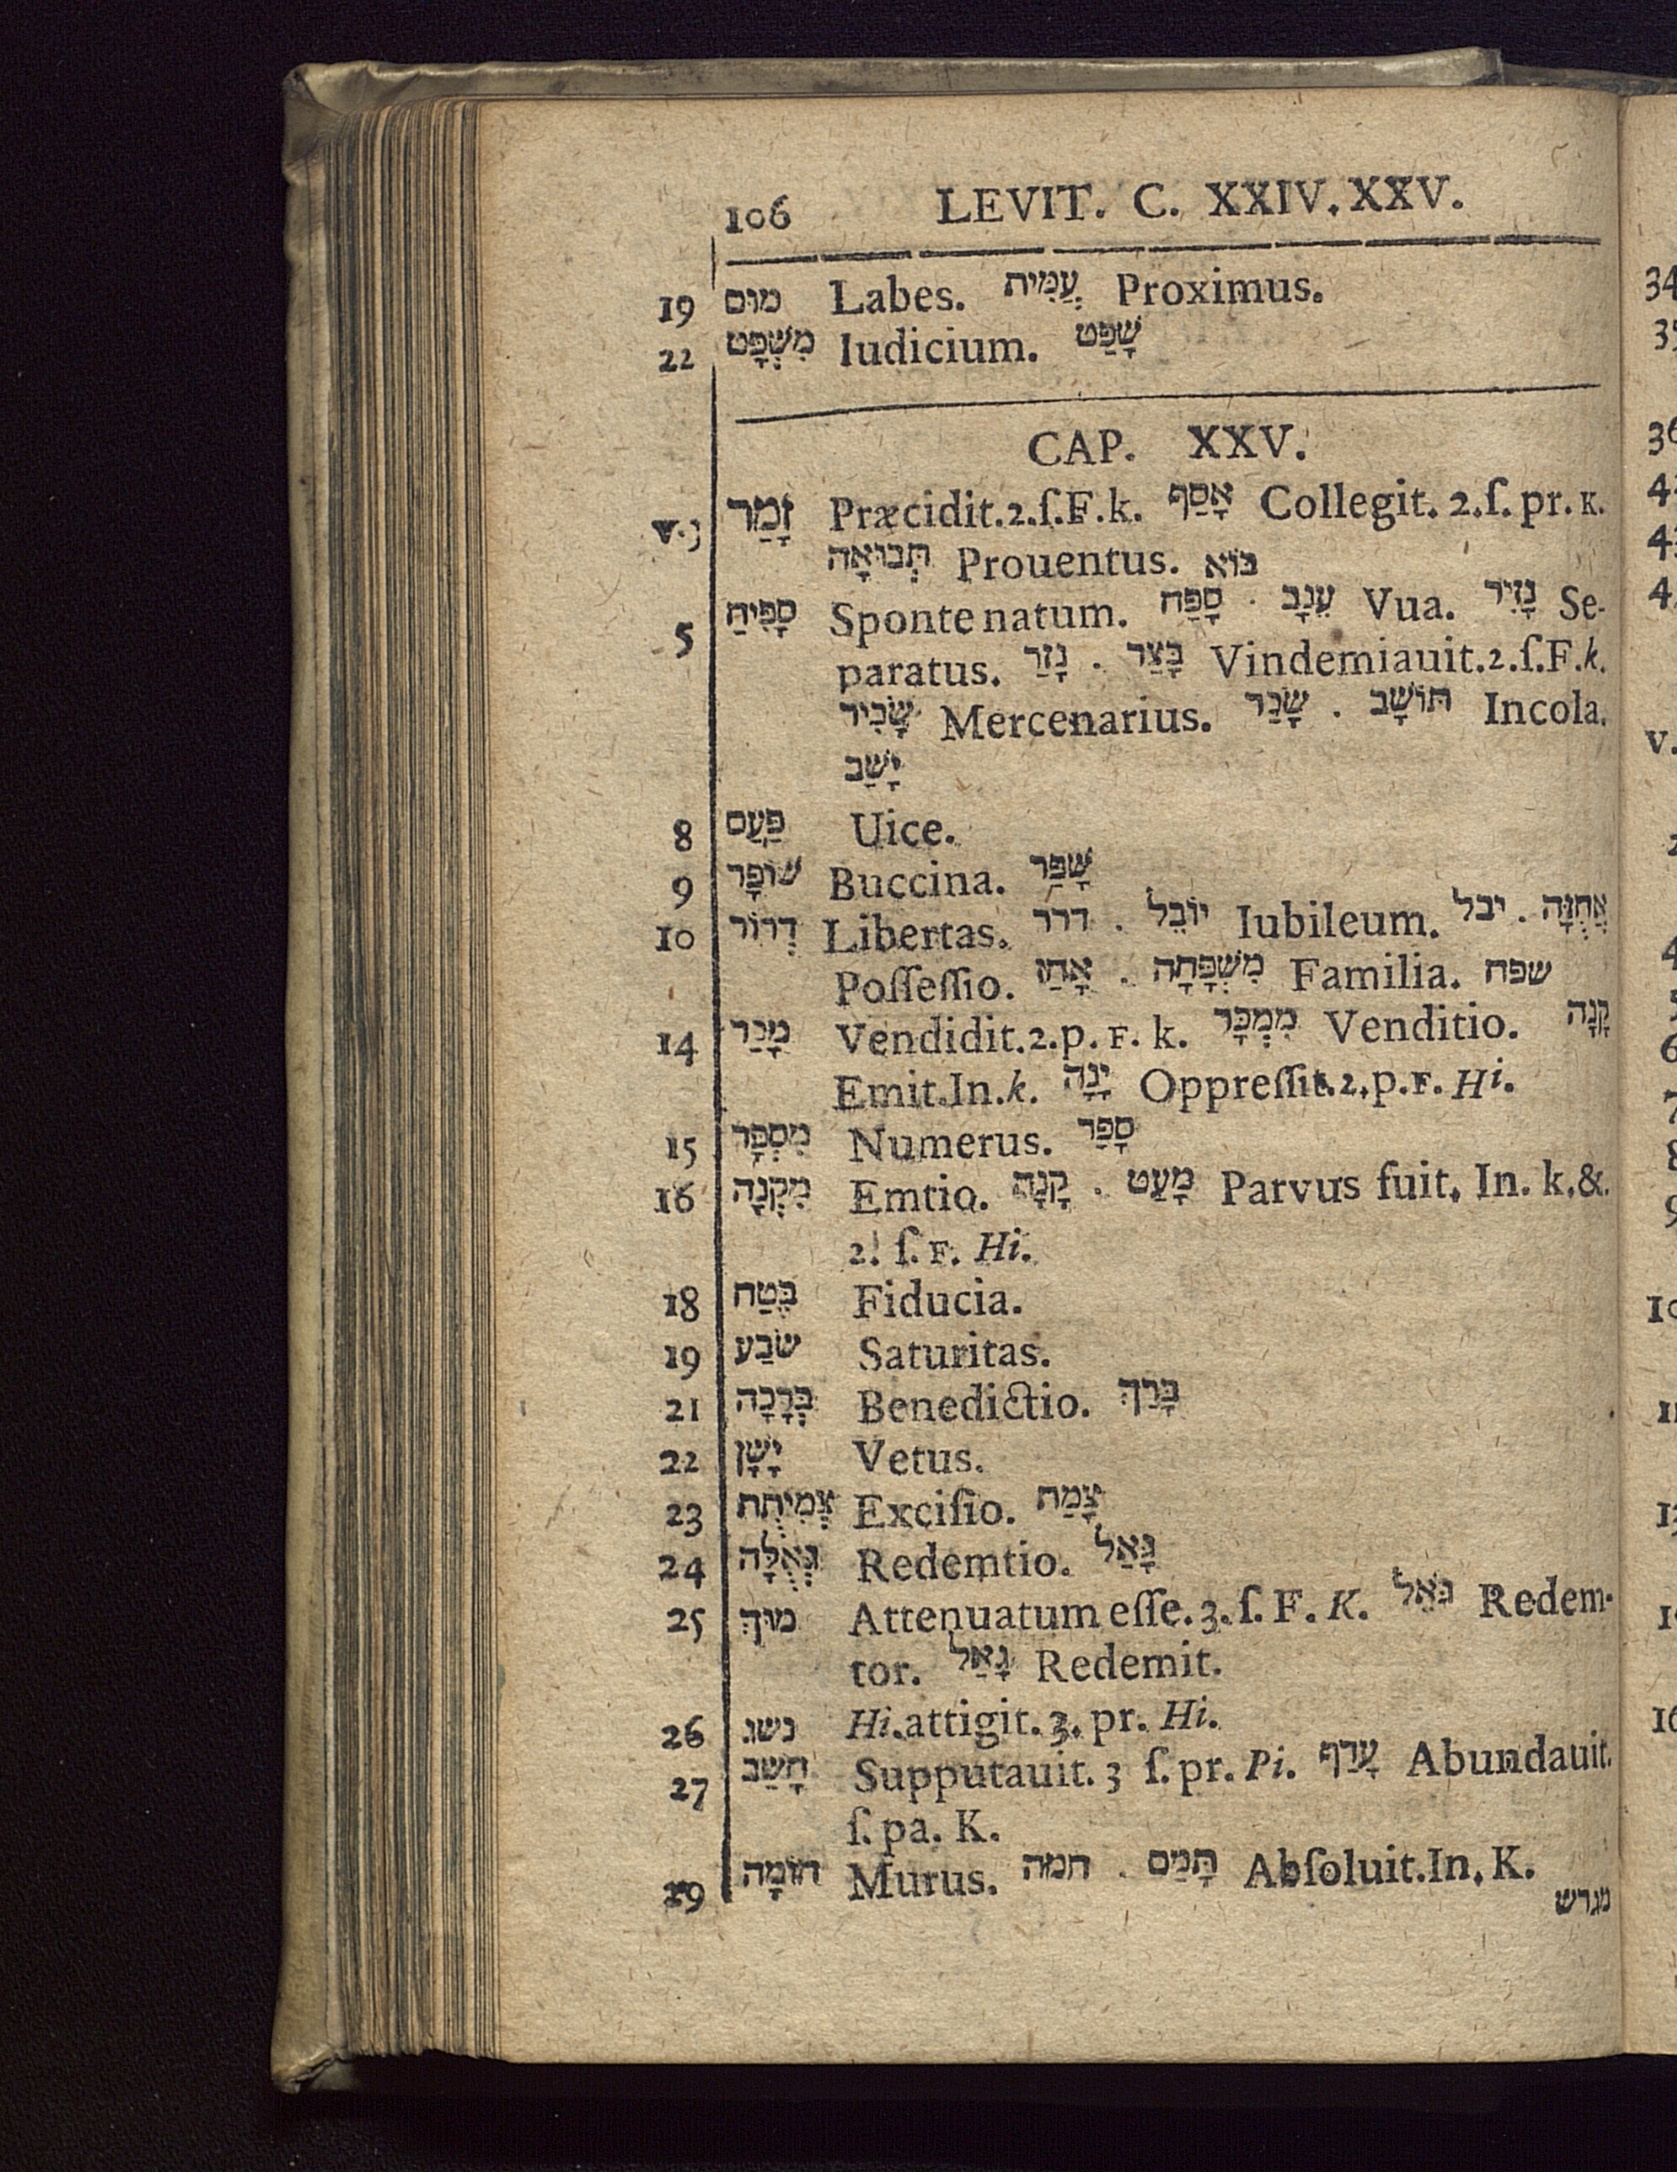 106 LEVIT. C. XXIV. XXV.
19 מוּם Labes. עֲמִית Proximus.
22 מִשְׁפָּט Iudicium. שָׁפַט
CAP. XXV.
v.3 זָמַר Præcidit.2.ſ.F.k. אָסַף Collegit. 2.ſ. pr. K.
תְּבוּאָה Prouentus. בּוֹא
5 סָפִיחַ Sponte natum. סָפַח . עֵנָב Vua. נָזִיר Se-
paratus. נָזַר . בָּצַר Vindemiauit.2.ſ.F.k.
שָׂכִיר Mercenarius. שָׂכַר . תּוֹשָׁב Incola.
יָשַׁב
8 פַּעַם Uice.
9 שׁוֹפָר Buccina. שָׁפַר
10 דְּרוֹר Libertas. דרר . יוֹבֵל Iubileum. יבל . אֲחֻזָּה
Poſſeſſio. אָחַז . מִשְׁפָּחָה Familia. שפח
14 מָכַר Vendidit.2.p. F. k. מִמְכָּר Venditio. קָנָה
Emit.In.k. יָנָה Oppreſſit.2.p.F. Hi.
15 מִסְפָּר Numerus. סָפַר
16 מִקְנָה Emtio. קָנָה . מָעַט Parvus fuit. In. k.&.
2. ſ. F. Hi.
18 בֶּטַח Fiducia.
19 שֹׂבַע Saturitas.
21 בְּרָכָה Benedictio. בָּרַךְ
22 יָשָׁן Vetus.
23 צְמִיתֻת Exciſio. צָמַת
24 גְּאֻלָּה Redemtio. גָּאַל
25 מוּךְ Attenuatum eſſe. 3. ſ. F. K. גֹּאֵל Redem-
tor. גָּאַל Redemit.
26 נשג Hi.attigit. 3. pr. Hi.
27 חָשַׁב Supputauit. 3 ſ. pr. Pi. עָדַף Abundauit.
ſ. pa. K.
29 חוֹמָה Murus. חמה . תָּמַם Abſoluit.In. K.
מגרש